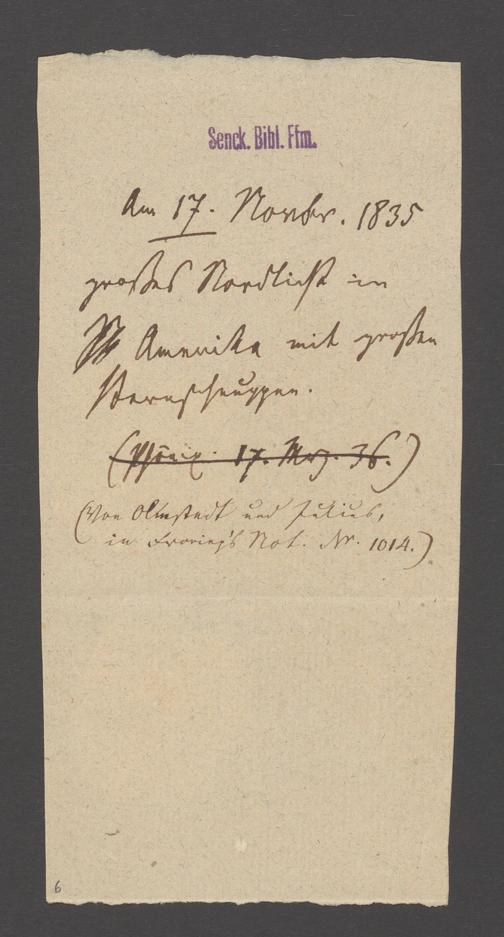 Senck. Bibl. Ffm.
Am 17. Novbr. 1835
großes Nordlicht in
Amerika mit großen
Sternschnuppen.
(Phönix. 17. Mrz. 36.)
(Von Olmstedt und
in Froriep's Not. Nr. 1014.)
6